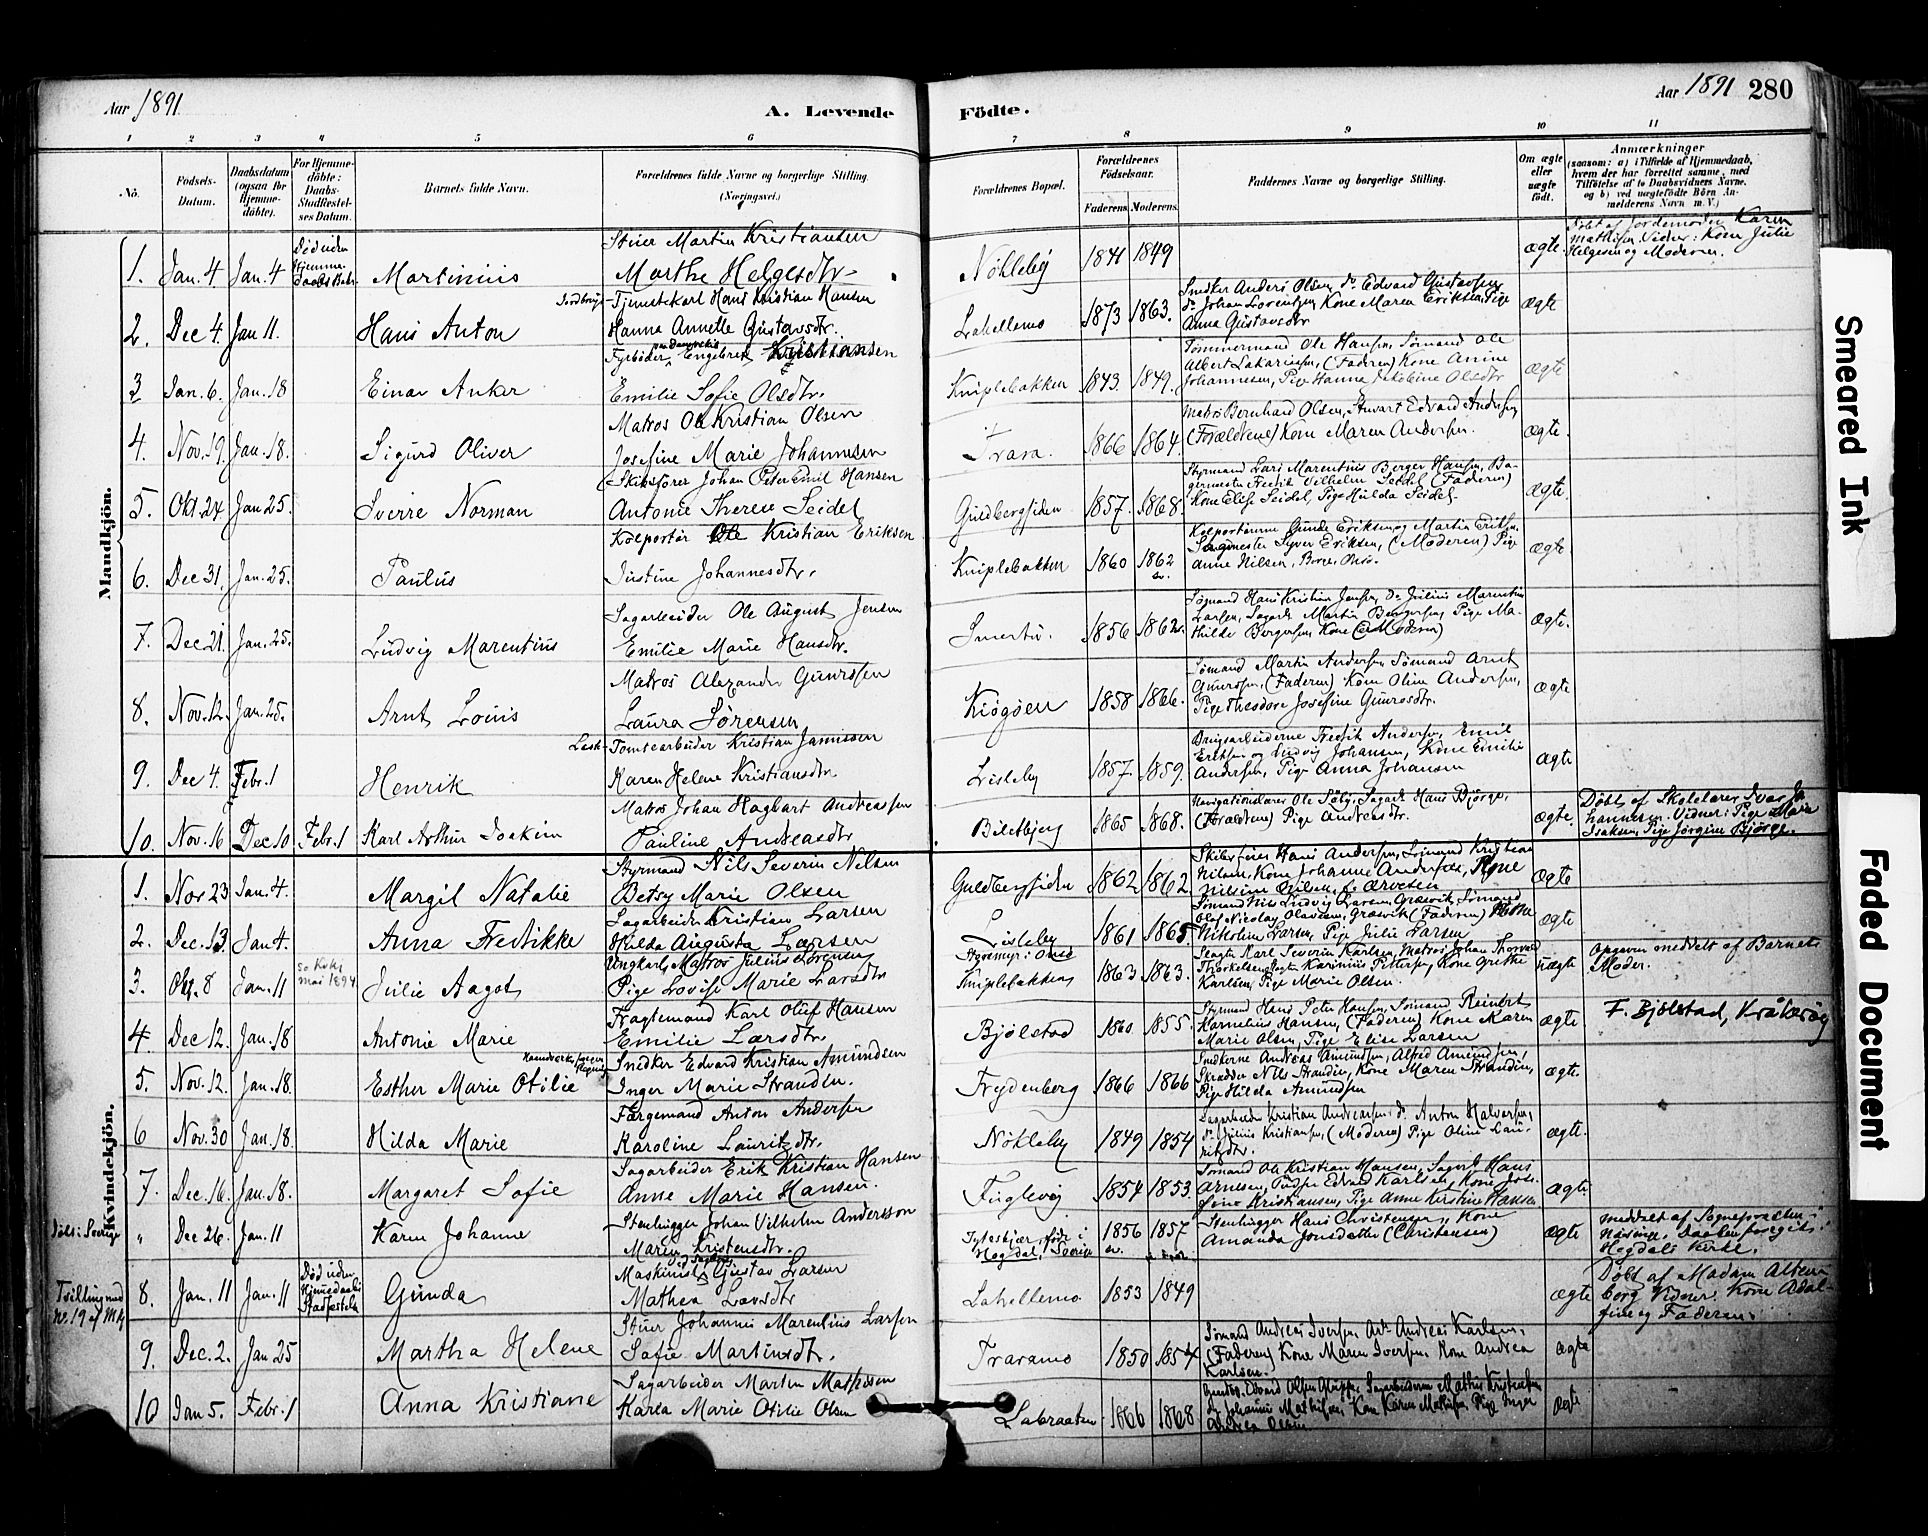 Aar 1891
A. Levende
Födte.
Aar 1891 280
1 2 3 4 5 6 7 8 9 10 11
No.
Födsels-Datum.
Daabsdatum (ogsaa for Hjemme-döbte).
For Hjemme-döbte: Daabs-Stadfæstel-ses Datum.
Barnets fulde Navn.
Forældrenes fulde Navne og borgerlige Stilling. (Næringsvei.)
Forældrenes Bopæl.
Forældrenes Födselsaar.
Faderens. Moderens.
Faddernes Navne og borgerlige Stilling.
Om ægte eller uægte födt.
Anmærkninger
(saasom: a) i Tilfælde af Hjemmedaab, hvem der har forrettet samme, med Tilföielse af to Daabsvidners Navne, og b) ved uægtefödte Börn Anmelderens Navn m. V.)
Mandkjön.
1. Jan. 4 Jan. 4 Død uden Hjemme- Martinius
Martin Kristiansen
Marthe Helgesdtr
Nökleby 1841 1849 ægte.
Døbt af Jordemoder Karen
Mathisen Vidner: Kone Julie
Helgesen og Moderen.
2. Dec 4. Jan 11. Hans Anton
Tjenestekarl Hans Kristian Hansen
Hanna Annette Gustavsdtr.
Lahellemo 1873 1863. ægte
Snedker Anders Olsen, do Edvard Gustavsen
do Johan Lorentzen Kone Maren Eriksen, Pige
Anna Gustavsdtr
3 Jan. 6. Jan. 18 Einar Anker
Fyrbøder Engebret Kristiansen
Emilie Sofie Olsdtr.
Kniplebakken 1843. 1849. ægte
Tømmermand Ole Hansen, Sømand Ole
Albert Zakariasen, (Faderen) Kone Anine
Johannesen, Pige Hanna Jakobine Olsdtr
4. Nov. 19. Jan. 18. Sigurd Oliver
Matros Ole Kristian Olsen
Josefine Marie Johannesen
Trara. 1866 1864. ægte.
Matros Bernhard Olsen, Stuart Edvard Andersen
(Forældrene) Kone Maren Andersen.
5. Okt. 24 Jan 25. Sverre Norman
Skibsfører Johan Peter Emil Hansen
Antonie Therese Seidel
Guldbergsiden 1857. 1868. ægte.
Styrmand Lars Marentius Berger Hansen, Ba-
germester Fredrik Vilhelm Seidel (Faderen)
Kone Elise Seidel, Pige Hulda Seidel.
6. Dec 31. Jan. 25. Paulus
Kolportør Ole Kristian Eriksen
Justine Johannesdtr.
Kniplebakken 1860 1862 ægte.
Kolportørerne Gunde Eriksen og Martin Eriksen
Syver Eriksen, (Moderen) Pige
Anne Nilsen, Borre, Onsø.
7. Dec 21. Jan. 25. Ludvig Marentius
Sagarbeider Ole August Jensen
Emilie Marie Hansdtr.
Smertu. 1856 1862 ægte.
Sømand Hans Kristian Jensen, do Julius Marentius
Larsen, Sagarb. Martin Bergersen, Pige Ma-
thilde Bergersen, Kone (Moderen)
8. Nov. 12. Jan. 25. Arnt Louis
Matros Alexander Gunerssen
Laura Sørensen
Kiøgøen 1858 1866. ægte
Sømand Martin Andersen, Sømand Arnt
Gunersen, (Faderen) Kone Oline Andersen,
Pige Theodore Josefine Gunersdtr.
9. Dec 4. Febr. 1 Henrik
Tomtearbeider Kristian Janussen
Karen Helene Kristiansdtr
Lisleby 1857. 1859. ægte
Brugsarbeiderne Fredrik Andersen, Emil
Eriksen og Ludvig Johansen, Kone Emilie
Andersen, Pige Anna Johansen
10. Nov. 16 Dec 10 Febr. 1 Karl Arthur Joakim
Matros Johan Hagbart Andreassen
Pauline Andreasdtr
Biletbjerg 1865 1868. ægte.
Navigationslærer Ole Søby, Sagarb. Hans Bjørge,
(Forældrene) Pige Andreasdtr.
Døbt af Skolelærer Ivar Jo-
hannesen. Vidner: Pige Marie
Isaksen, Pige Jørgine Bjørge.
Kvindekjön.
1. Nov 23 Jan. 4. Margit Natalie
Styrmand Nils Severin Nilsen
Betsy Marie Olsen
Guldbergsiden 1862 1862 ægte
Hans Andersen, Sømand Kristian
Nilsen, Kone Johanne Andersen, Kone
2. Dec. 13. Jan 4. Anna Fredrikke
Sagarbeider Kristian Larsen
Hilda Augusta Larsen
Lisleby 1861 1865. ægte
Sømand Nils Ludvig Larsen, Græsvik, Sømand
Olaf Nicolay Olavesen, Græsvik (Faderen) Kone
Nikoline Larsen, Pige Julie Larsen
3. Okt. 8 Jan. 11 Julie Aagot
Ungkarl, Matros Julius Sørensen
Pige Lovise Marie Larsdtr
Kniplebakken 1863 1863. uægte
Slagter Karl Severin Karlsen, Matros Johan Thorvald
Thorkelsen, Karinius Pettersen, Kone Grethe
Karlsen, Pige Marie Olsen.
Opgaven meddelt af Barnets
Moder.
4. Dec 12. Jan. 18 Antonie Marie
Fragtemand Karl Oluf Hansen
Emilie Larsdtr.
Bjølstad 1860 1855. ægte.
Styrmand Hans Peter Hansen, Sømand Reinert
Kornelius Hansen, (Faderen) Kone Karen
Marie Olsen, Pige Elise Larsen
F. Bjølstad, Kråkerøy
5. Nov. 12. Jan. 18. Esther Marie Otilie
Snedker Edvard Kristian Amundsen
Inger Marie Stranden.
Frydenberg 1866 1866 ægte.
Snedkerne Andreas Amundsen, Alfred Amundsen,
Skrædder Nils Stranden, Kone Maren Stranden,
Pige Hilda Amundsen
6 Nov. 30 Jan. 18. Hilda Marie
Færgemand Anton Andersen
Karoline Lauritzdtr.
Nökleby 1849 1854 ægte.
Sagarbeider Kristian Andreassen, do Anton Halvorsen,
do Julius Kristiansen, (Moderen) Pige Oline Lau-
ritzdtr.
7. Dec. 16. Jan. 18. Margaret Sofie
Sagarbeider Erik Kristian Hansen
Anne Marie Hansen.
Fuglevig 1854 1853. ægte
Sømand Ole Kristian Hansen, Sagarb. Hans
Arnesen, Edvard Karlsen, Kone Jose-
fine Kristiansen, Pige Anne Kirstine Hansen
Døbt i Sverige
" Dec 26. Jan. 11 Karen Johanne
Stenhugger Johan Vilhelm Andersson
Maren Kristensdtr.
født i Hogdal, Sverige 1856 1857 ægte
Stenhugger Hans Christensen, Kone
Amanda Jonsdatter (Christensen)
Meddelt af Sognepræsten i
Næsinge, Daaben foregik i
Hogdals Kirke.
Tvilling med No. 19 af Mk
8. Jan. 11 Jan. 11 Død uden Hjemmedaabs Stadfæstelse Gunda
Maskinist Gustav Larsen
Mathea Larsdtr
Lahellemo 1853 1849 ægte
Døbt af Madam Alten-
borg Vidner: Kone Adol-
fine og Faderen.
9. Dec. 2. Jan 25 Martha Helene
Johannes Marentius Larsen
Sofie Martinsdtr.
Traramo 1850 1854 ægte
Sømand Andreas Iversen, Arb. Andreas Karlsen,
(Faderen) Kone Maren Iversen, Kone Andrea
Karlsen.
10 Jan 5. Febr. 1 Anna Kristiane
Sagarbeider Martin Mathisen
Karla Marie Otilie Olsen
Labraaten 1866 1868 ægte
Edvard Olsen Sagarbeiderne Mathis Kristensen
do Johannes Mathisen, Kone Karen Mathisen, Pige Inger
Andrea Olsen
Smeared Ink
Faded Document